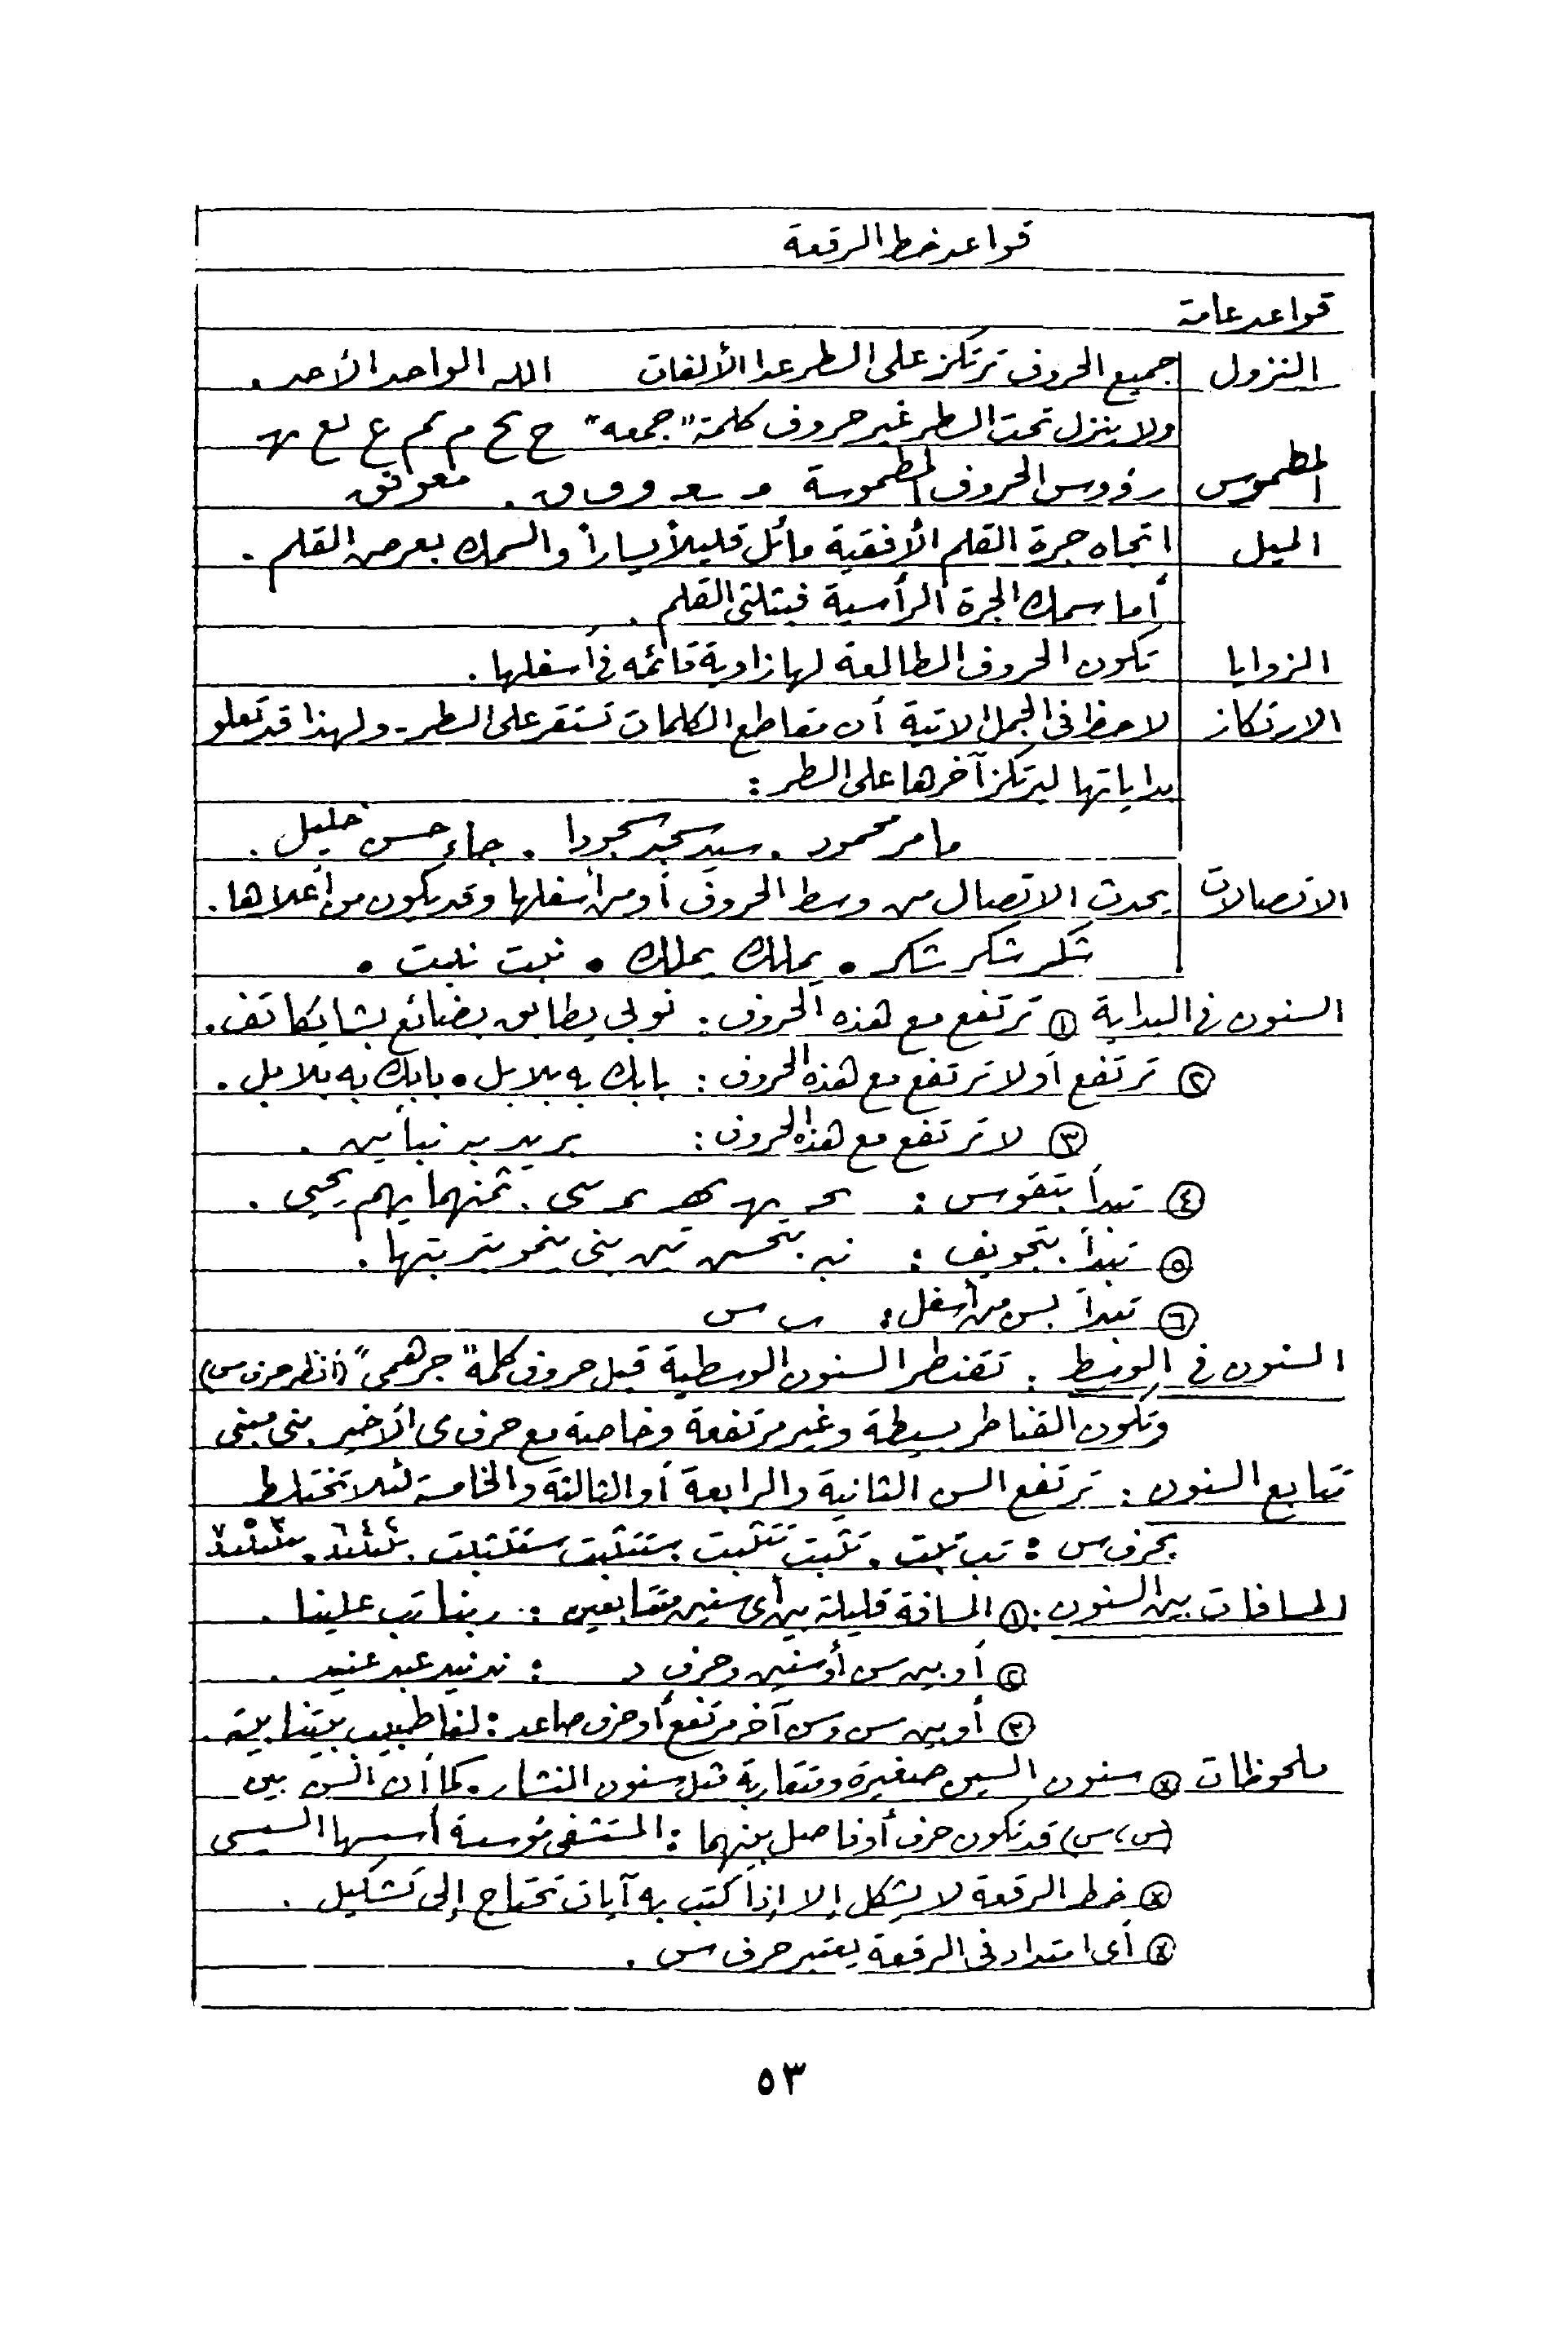 قواعد خط الرقعة
قواعد عامة
النزول جميع الحروف ترتكز على السطر عدا الألفات الله الواحد الأحد .
ولا ينزل تحت السطر غير حروف كلمة "جمعه" ح مح م مم ع مع مه
المطموس رؤوس الحروف المطموسة مـ ـعـ و ف ق . معوفق
الميل اتجاه جرة القلم الأفقية مائل قليلاً يساراً والسمك بعرض القلم .
أما سمك الجرة الرأسية فبثلثي القلم .
الزوايا تكون الحروف الطالعة لها زاوية قائمه في أسفلها .
الارتكاز لاحظ في الجمل الاتية أن مقاطع الكلمات تستقر على السطر - ولهذا قد تعلو
بداياتها ليرتكز آخرها على السطر :
مامر محمود . سيد سجد سجودا . جاء حسن خليل .
الاتصالات يحدث الاتصال من وسط الحروف أو من أسفلها وقد يكون من أعلاها .
شكر شكر شكر . يملك يملك . نبت نبت .
السنون في البداية ① ترتفع مع هذه الحروف : نوبي يطابق بضائع بشايكاتف .
② ترتفع أو لا ترتفع مع هذه الحروف : بابك به بلابل . بابك به بلابل .
③ لا ترتفع مع هذه الحروف : بريد به نبأين .
④ تبدأ بتقوس : ثمنهما بهم يحيى .
⑤ تبدأ بتجويف :
⑥ تبدأ بسن من أسفل : س
السنون في الوسط : تقنطر السنون الوسطية قبل حروف كلمة "جرهمى" (أنظر حرف س)
وتكون القناطر بسيطة وغير مرتفعة وخاصة مع حرف ى الأخير بنى مبنى
تتابع السنون : ترتفع السن الثانية والرابعة أو الثالثة والخامسة لئلا تختلط
بحرف س :
المسافات بين السنون : ① المسافة قليلة بين أى سنين متتابعين : ربنا تب علينا .
② أو بين سن أو سنين وحرف د : عبد عنيد .
③ أو بين سن وسن آخر مرتفع أو حرف صاعد :
ملحوظات * سنون السين صغيرة ومتقاربة مثل سنون المنشار . كما أن السن بين
(س،س) قد تكون حرف أو فاصل بينهما : المستشفى مؤسسة أسسها السيسى
* خط الرقعة لا يشكل إلا إذا كتب به آيات تحتاج إلى تشكيل .
* أى امتداد في الرقعة يعتبر حرف س .
٥٣